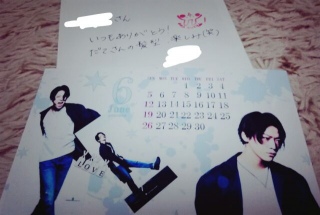 さん
いつもありがとう!
さんの髪型 楽しみ(笑)
6
June
1 2 3 4
5 6 7 8 9 10 11
12 13 14 15 16 17 18
19 20 21 22 23 24 25
26 27 28 29 30
LOVE